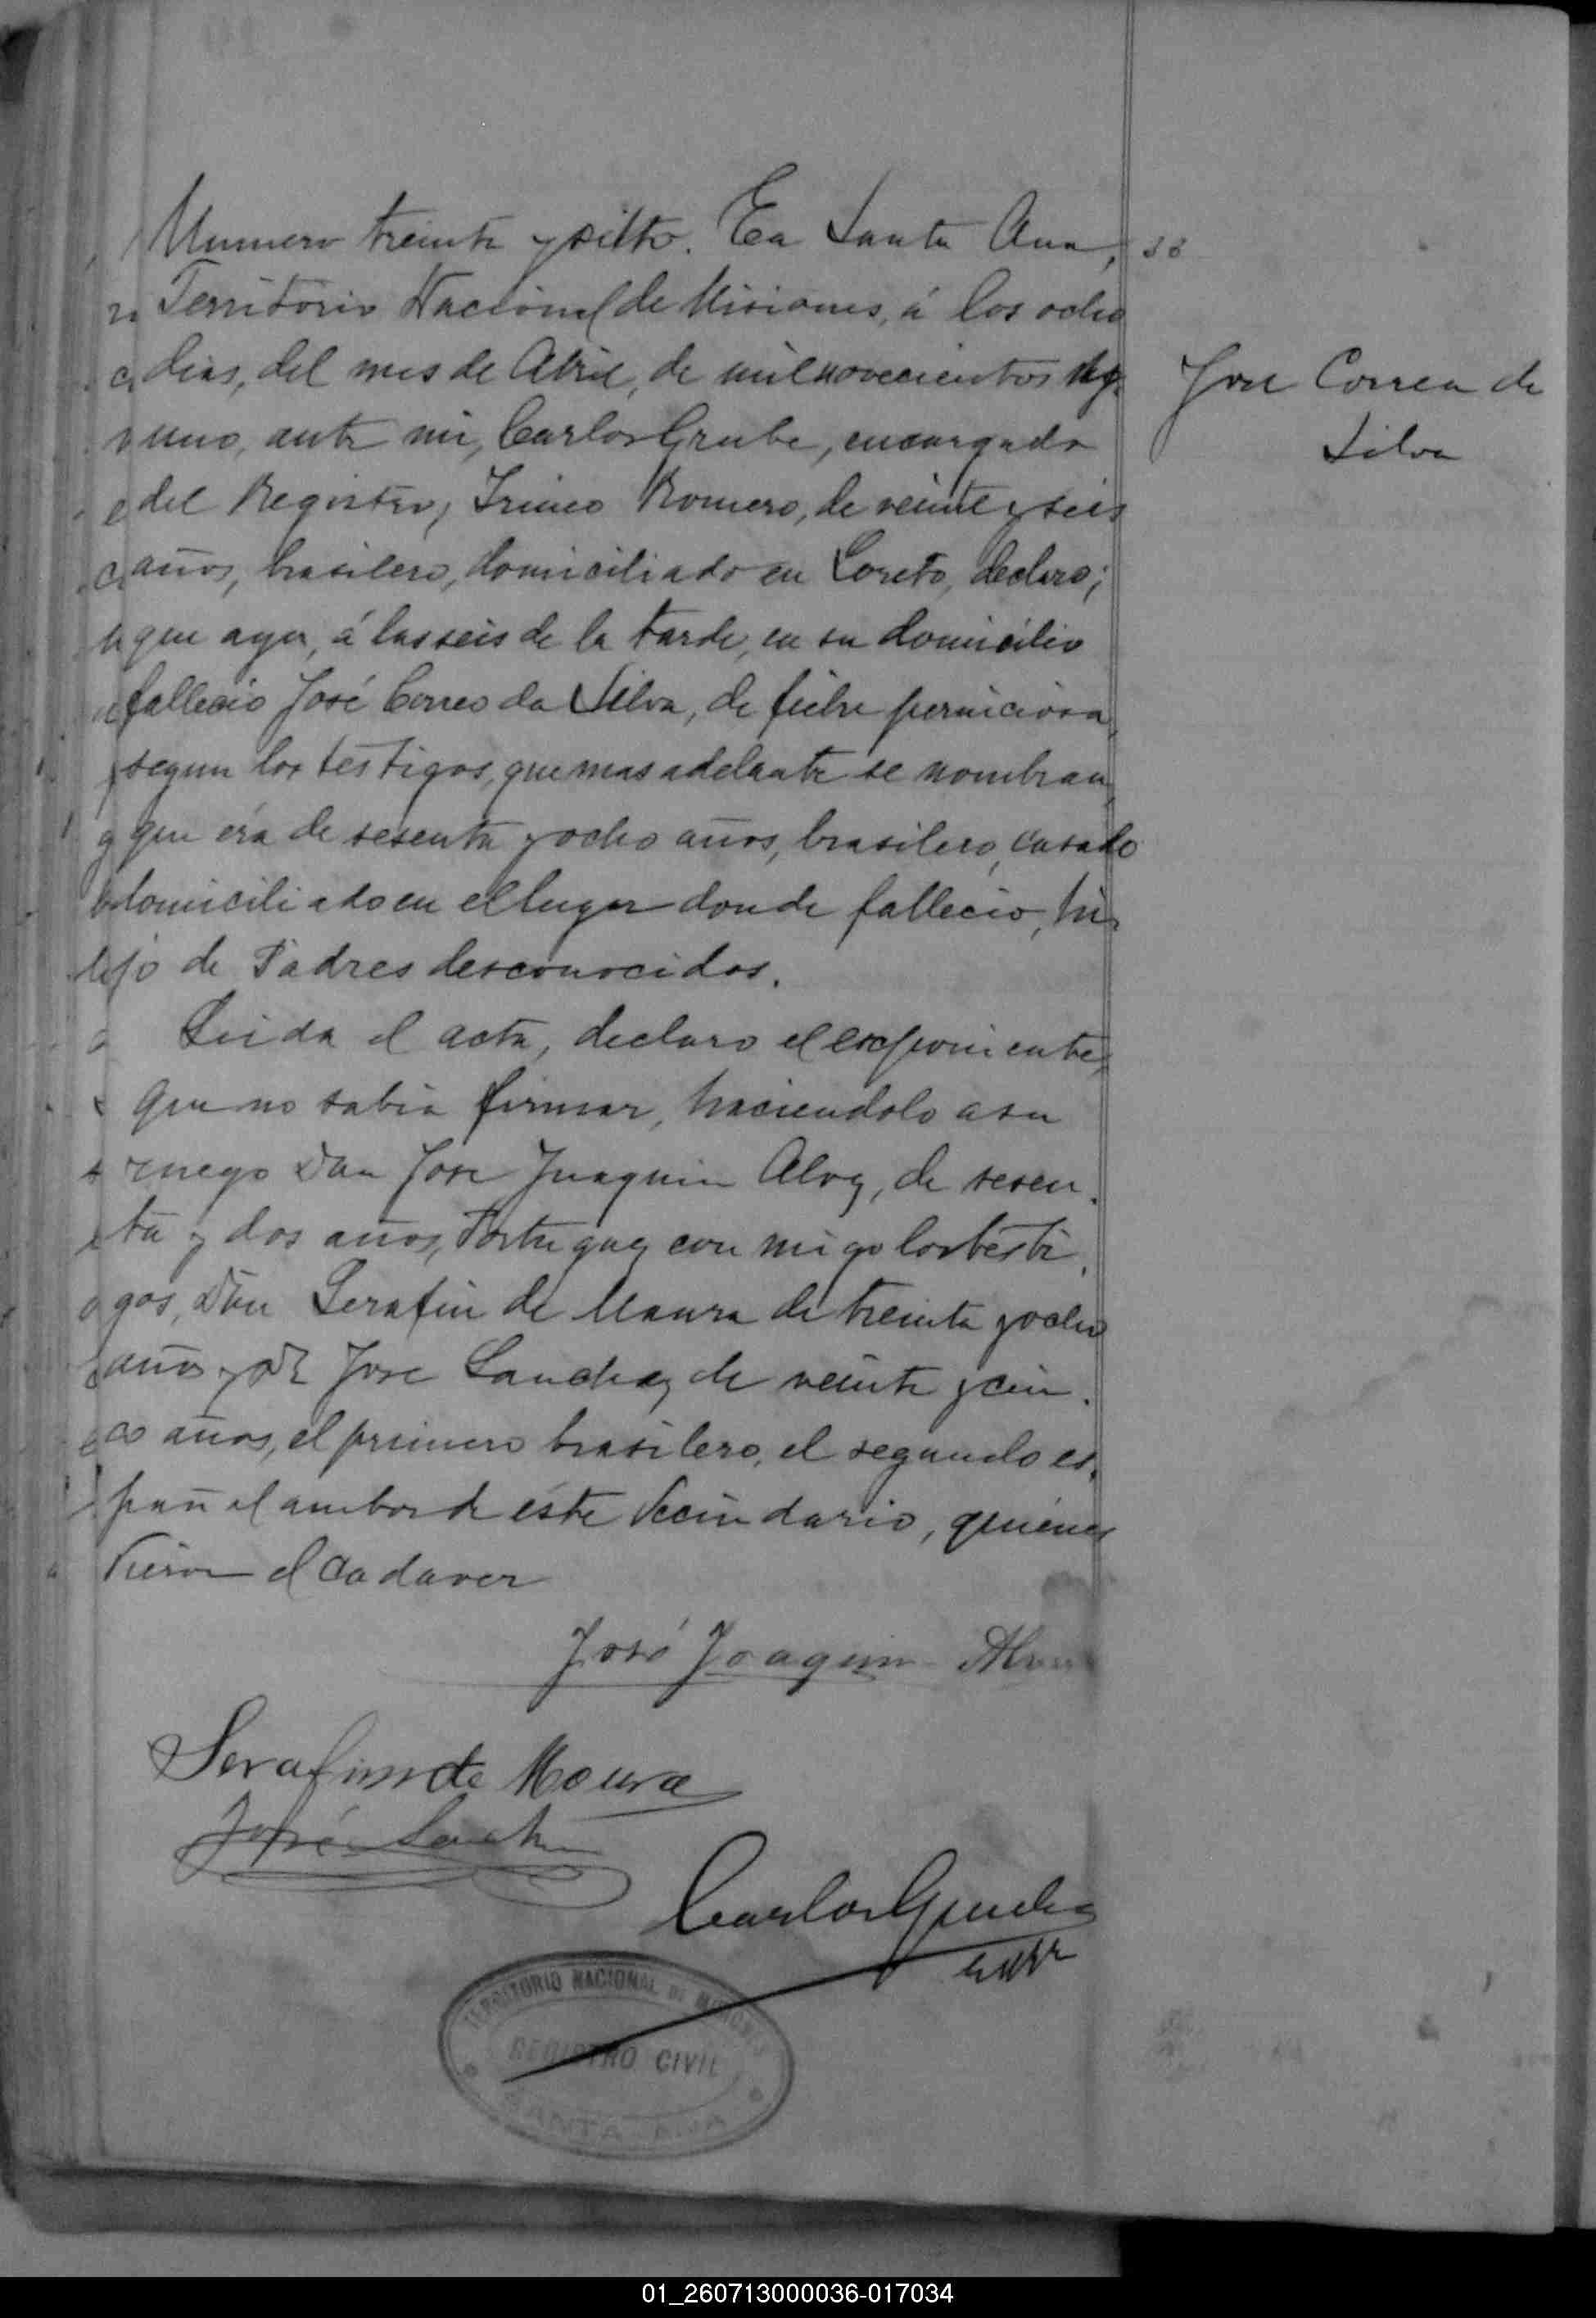 Numero treinta y siete. En Santa Ana,
Territorio Nacional de Misiones, á los ocho
dias, del mes de Abril, de mil novecientos
uno, ante mi, Carlos Grube, encargado
del Registro, Irineo Romero, de veinte y seis
años, brasilero, domiciliado en Loreto, declaro;
que ayer, á las seis de la tarde, en su domicilio
fallecio José Correo da Silva, de fiebre perniciosa,
segun los testigos, que mas adelante se nombran,
que era de sesenta y ocho años, brasilero, casado
domiciliado en el lugar donde fallecio, hi
jo de Padres desconocidos.
Leida el acta, declaro el exponiente,
que no sabia firmar, haciendolo a su
ruego Don Jose Juaquin Alvz, de sesen
ta y dos años, Portuguez con migo los testi
gos, Don Serafin de Maura de treinta y ocho
años y Dn Jose Sanchez de veinte y cin
co años, el primero brasilero, el segundo es
pañol ambos de éste Vecindario, quiénes
Vieron el Cadaver
José Joaquim
Serafim de Moura
José Sanch
Carlos Grube
TERRITORIO NACIONAL DE MISIONES
REGISTRO CIVIL
SANTA ANA
Jose Correa de
Silva
01_260713000036-017034